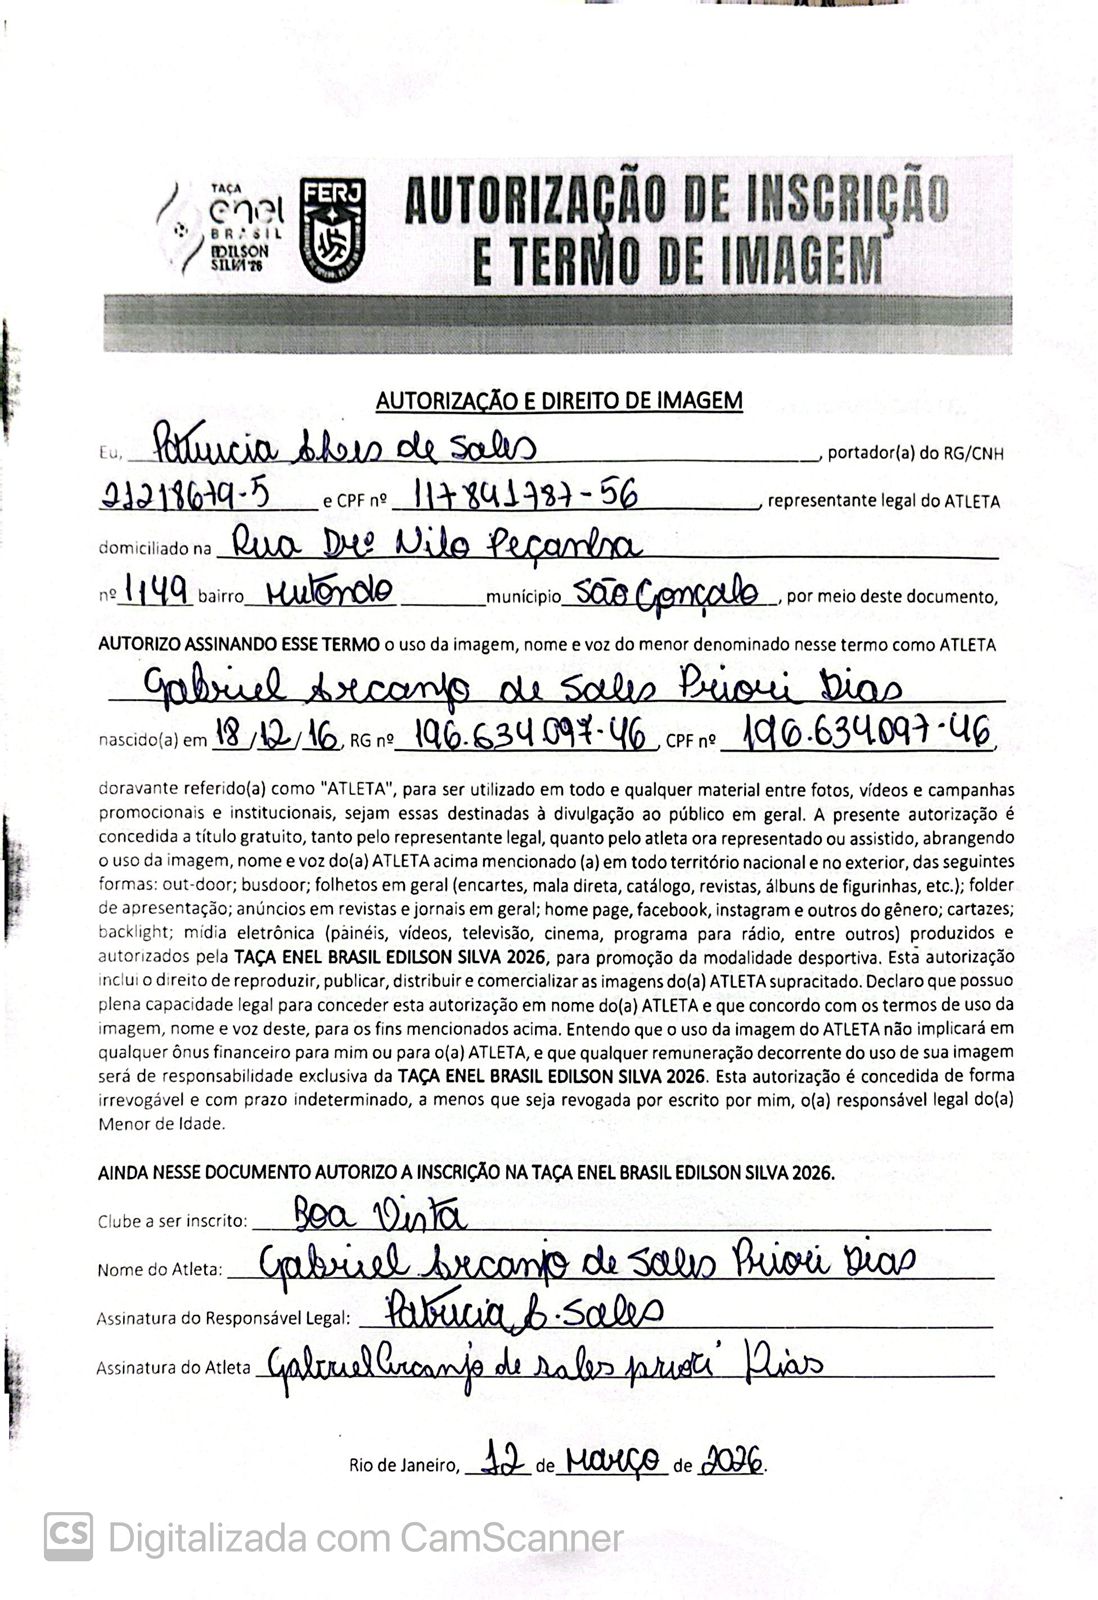 TAÇA
enel
BRASIL
EDILSON
SILVA '26
FERJ
AUTORIZAÇÃO DE INSCRIÇÃO
E TERMO DE IMAGEM
AUTORIZAÇÃO E DIREITO DE IMAGEM
Eu, Patrícia de Sales, portador(a) do RG/CNH
21218679-5 e CPF nº 117841787-56, representante legal do ATLETA
domiciliado na Rua Drº Nilo Peçanha
nº 1149 bairro Mutondo município São Gonçalo, por meio deste documento,
AUTORIZO ASSINANDO ESSE TERMO o uso da imagem, nome e voz do menor denominado nesse termo como ATLETA
Gabriel Arcanjo de Sales Priori Dias
nascido(a) em 18/12/16, RG nº 196.634.097-46, CPF nº 196.634.097-46,
doravante referido(a) como "ATLETA", para ser utilizado em todo e qualquer material entre fotos, vídeos e campanhas
promocionais e institucionais, sejam essas destinadas à divulgação ao público em geral. A presente autorização é
concedida a título gratuito, tanto pelo representante legal, quanto pelo atleta ora representado ou assistido, abrangendo
o uso da imagem, nome e voz do(a) ATLETA acima mencionado (a) em todo território nacional e no exterior, das seguintes
formas: out-door; busdoor; folhetos em geral (encartes, mala direta, catálogo, revistas, álbuns de figurinhas, etc.); folder
de apresentação; anúncios em revistas e jornais em geral; home page, facebook, instagram e outros do gênero; cartazes;
backlight; mídia eletrônica (painéis, vídeos, televisão, cinema, programa para rádio, entre outros) produzidos e
autorizados pela TAÇA ENEL BRASIL EDILSON SILVA 2026, para promoção da modalidade desportiva. Esta autorização
inclui o direito de reproduzir, publicar, distribuir e comercializar as imagens do(a) ATLETA supracitado. Declaro que possuo
plena capacidade legal para conceder esta autorização em nome do(a) ATLETA e que concordo com os termos de uso da
imagem, nome e voz deste, para os fins mencionados acima. Entendo que o uso da imagem do ATLETA não implicará em
qualquer ônus financeiro para mim ou para o(a) ATLETA, e que qualquer remuneração decorrente do uso de sua imagem
será de responsabilidade exclusiva da TAÇA ENEL BRASIL EDILSON SILVA 2026. Esta autorização é concedida de forma
irrevogável e com prazo indeterminado, a menos que seja revogada por escrito por mim, o(a) responsável legal do(a)
Menor de Idade.
AINDA NESSE DOCUMENTO AUTORIZO A INSCRIÇÃO NA TAÇA ENEL BRASIL EDILSON SILVA 2026.
Clube a ser inscrito: Boa Vista
Nome do Atleta: Gabriel Arcanjo de Sales Priori Dias
Assinatura do Responsável Legal: Patrícia A. Sales
Assinatura do Atleta Gabriel Arcanjo de Sales priori Dias
Rio de Janeiro, 12 de Março de 2026.
CS Digitalizada com CamScanner